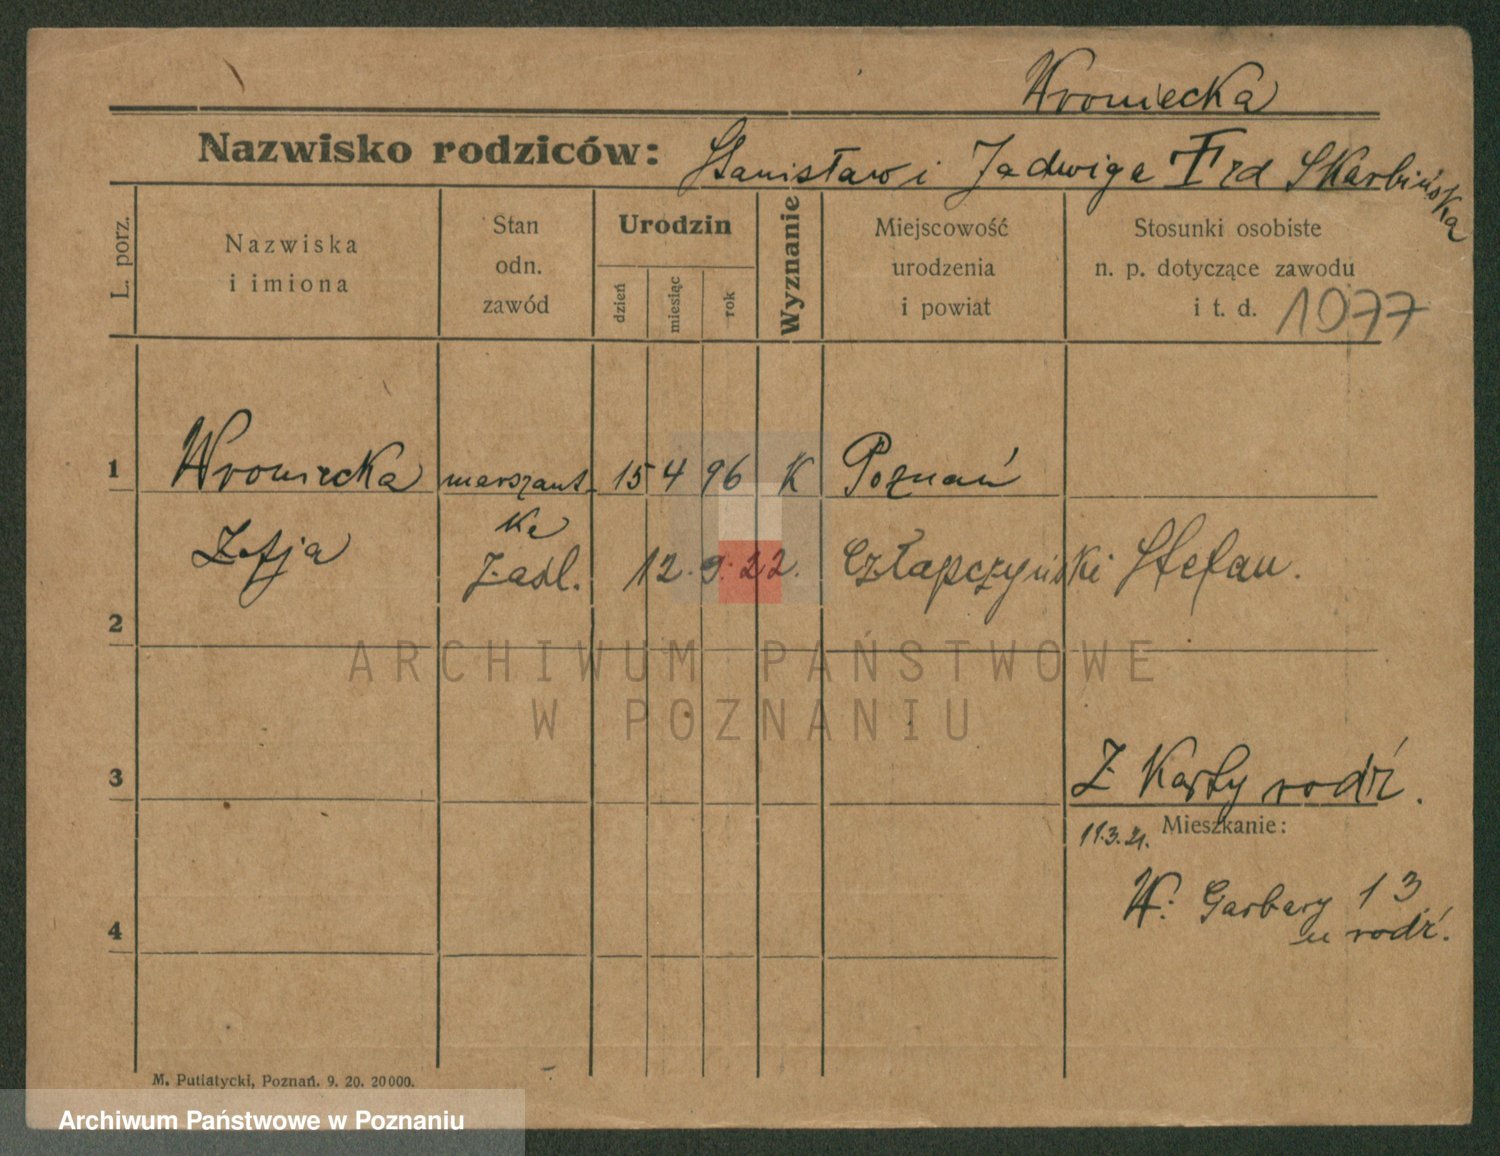 Wroniecka
Nazwisko rodziców: Stanisław i Jadwiga Skarbińska
L. porz.
Nazwiska
i imiona
Stan
odn.
zawód
Urodzin
dzień
miesiąc
rok
Wyznanie
Miejscowość
urodzenia
i powiat
Stosunki osobiste
n. p. dotyczące zawodu
i t. d. 1077
1 Wroniecka marszant- 15 4 96 K Poznań
ka
Zofja Zaśl. 12. 9. 22. Człapczyński Stefan.
2
ARCHIWUM PAŃSTWOWE
W POZNANIU
3 Z Karty rodź.
11.3.21. Mieszkanie:
W. Garbary 13
u rodź.
4
M. Putiatycki, Poznań. 9. 20. 20000.
Archiwum Państwowe w Poznaniu